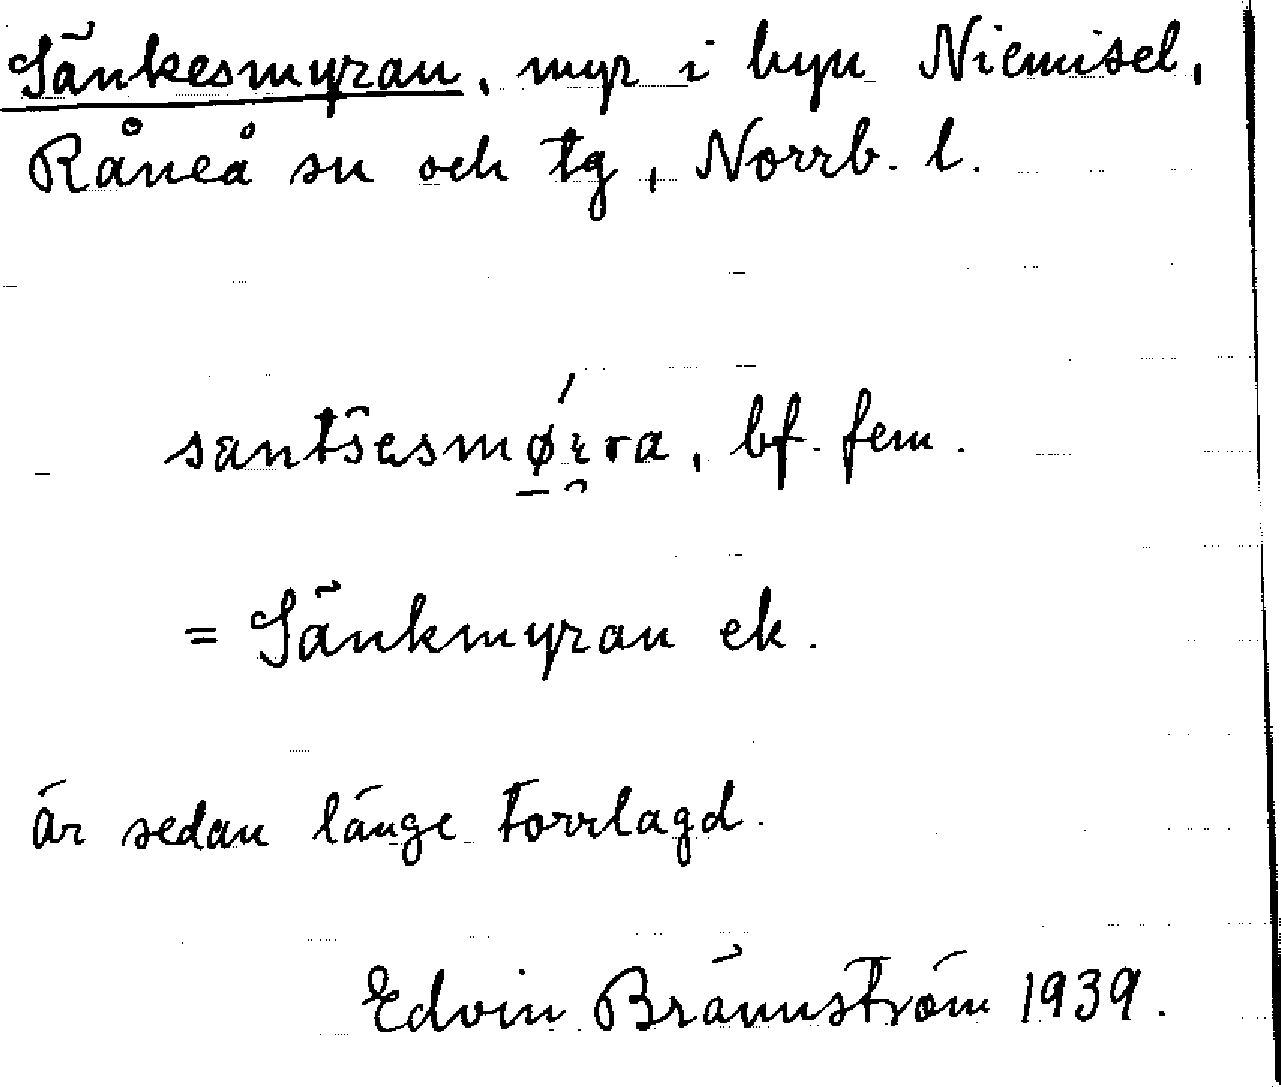 Sänkesmyran, myr i byn Niemisel,
Råneå sn och tg, Norrb. l.
santšesmǿrra, bf. fem.
= Sänkmyran ek.
är sedan länge torrlagd.
Edvin Brännström 1939.